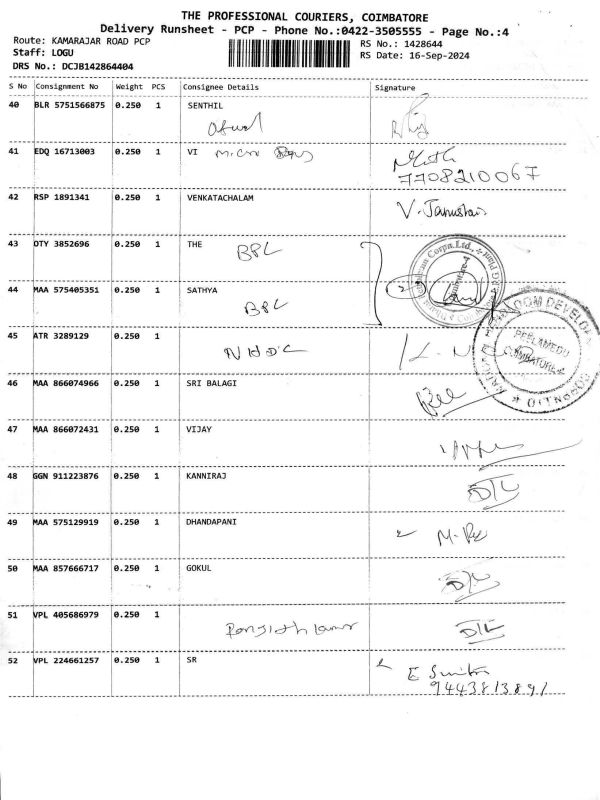 THE PROFESSIONAL COURIERS, COIMBATORE
Delivery Runsheet - PCP - Phone No.:0422-3505555 - Page No.:4
Route: KAMARAJAR ROAD PCP
RS No.: 1428644
Staff: LOGU
RS Date: 16-Sep-2024
DRS No.: DCJB142864404
S No Consignment No Weight PCS Consignee Details Signature
40 BLR 5751566875 0.250 1 SENTHIL
41 EDQ 16713003 0.250 1 VI Micro
7708210067
42 RSP 1891341 0.250 1 VENKATACHALAM
43 OTY 3852696 0.250 1 THE BPL
44 MAA 575405351 0.250 1 SATHYA
BPL
2
PEELAMEDU
COIMBATORE-4
45 ATR 3289129 0.250 1
NHDC
46 MAA 866074966 0.250 1 SRI BALAGI
47 MAA 866072431 0.250 1 VIJAY
48 GGN 911223876 0.250 1 KANNIRAJ
D/L
49 MAA 575129919 0.250 1 DHANDAPANI
50 MAA 857666717 0.250 1 GOKUL
D/L
51 VPL 405686979 0.250 1
D/L
52 VPL 224661257 0.250 1 SR
9443813891